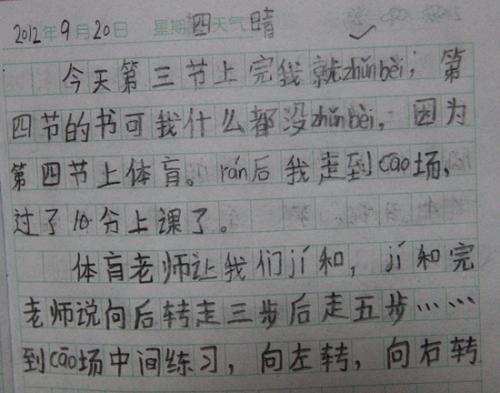 2012年9月20日 星期四天气晴
今天第三节上完我就zhǔnbèi，第
四节的书可我什么都没zhǔnbèi，因为
第四节上体育。rán后我走到cāo场，
过了10分上课了。
体育老师让我们jí和，jí和完
老师说向后转走三步后走五步……
到cāo场中间练习，向左转，向右转